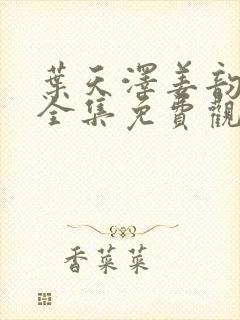 葉天澤姜韵
全集免費觀
香菜菜